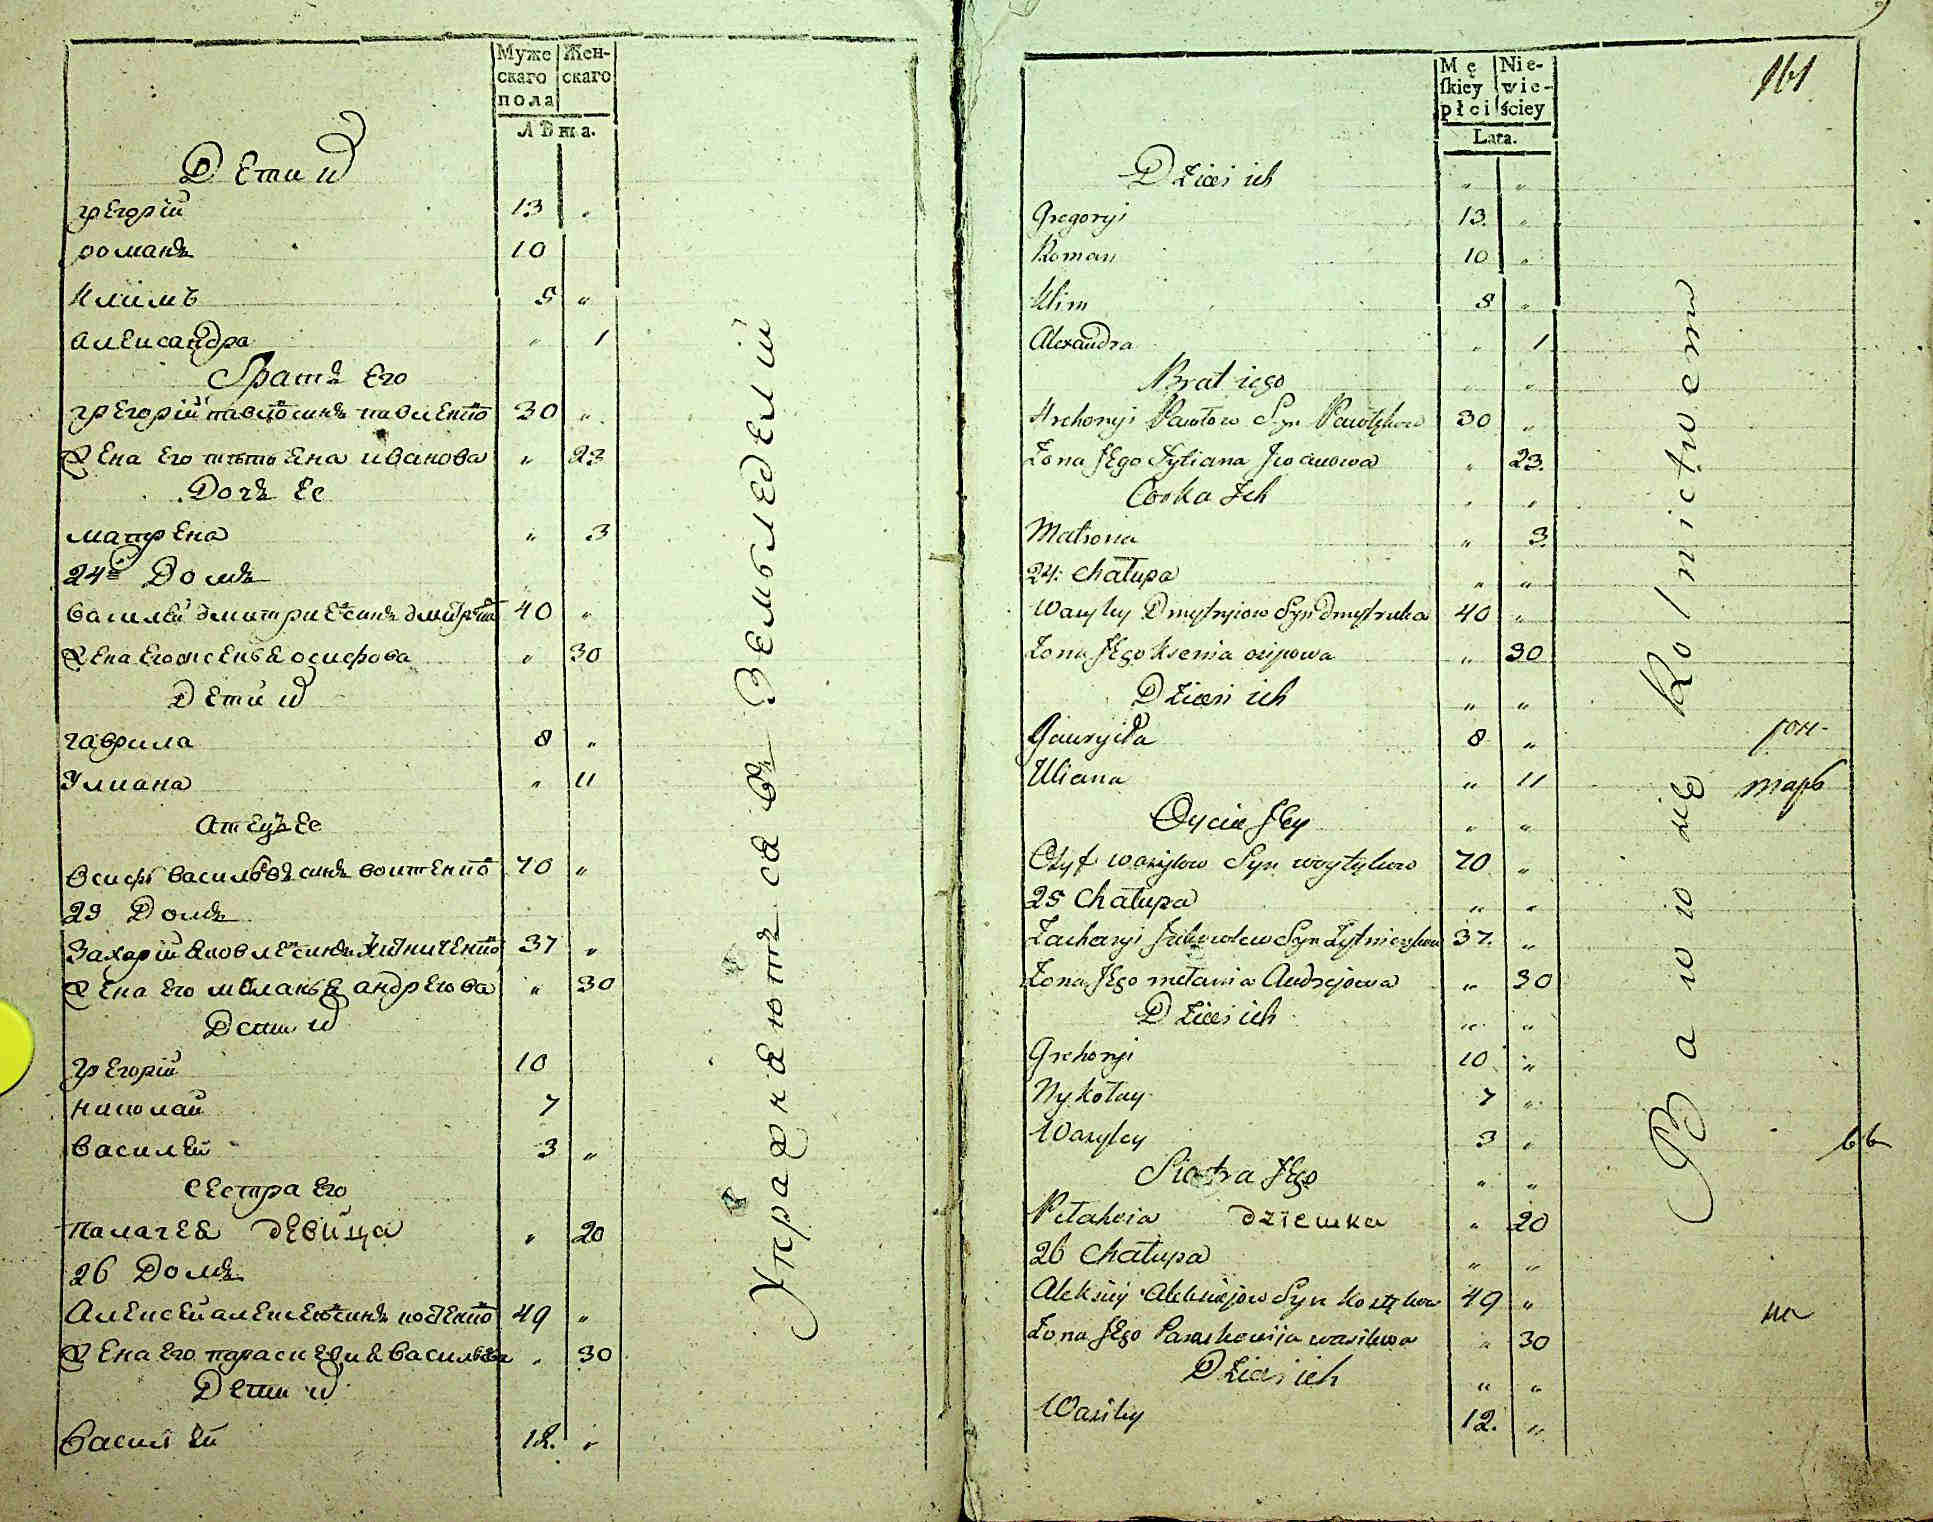 Муже Жен-
скаго скаго
пола
Лѣта.
Дети и
Грегорій 13 "
Романъ 10
Клiмъ 8 "
Александра " 1
Братъ Его
Грегорій Павловъ синъ Павленко 30 "
Жена Его Татьтяна Иванова " 23
Дочь Ее
Матрена " 3
24й Домъ
Василей Дмитриевъ синъ 40 "
Жена Его Ксенья Осифова " 30
Дети и
Гаврила 8 "
Улиана " 11
Атецъ Ее
Осифъ Васильевъ синъ Войтенко 70 "
25 Домъ
Захарій Яковлевъ синъ Житниченко 37 "
Жена Его Меланья Андреюва " 30
Дети и
Грегорій 10
Николай 7
Василей 3 "
Сестра Его
Палагея девица " 20
26 Домъ
Алексей Алексеювъ синъ Костенко 49 "
Жена Его Параскевия Васильева " 30
Дети и
Василей 12. "
Упражняютъся въ Земьледелии
Mę Nie-
skiey wie-
płci ściey
Lata.
161
Dzieci ich " "
Gregoryi 13. "
Roman 10 "
Klim 8 "
Alexandra " 1
Brat iego " "
Hrehoryi Pawłow Syn Pawłęko 30 "
Żona Jego Tytiana Jwanowa " 23.
Corka Ich " "
Matrona " 3.
24: Chałupa " "
Wasyley Dmytryiow Syn Dmytruka 40 "
Żona Jego Ksenia osipowa " 30
Dzieci ich " "
Gawryiła 8 "
Uliana " 11
Oyciec Jey " "
Osyf wasylow Syn woytęko 70 "
25 Chałupa " "
Zacharyi Jakowlew Syn Żytniczęko 37. "
Żona Jego mełania Andrejowa " 30
Dzieci ich " "
Grehoryi 10 "
Nykołay 7 "
Wasyley 3 "
Siostra Jego " "
Pełaheia dziewka " 20
26 Chałupa " "
Aleksiey Aleksiejow Syn Kostęko 49 "
Żona Jego Paraskewija wasilewa " 30
Dzieci ich " "
Wasiley 12. "
Bawią się Rolnictwem